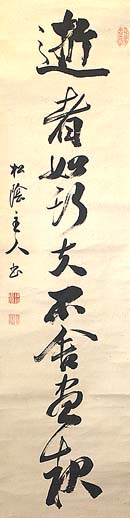 逝者如斯夫不舎晝夜
松陰主人書